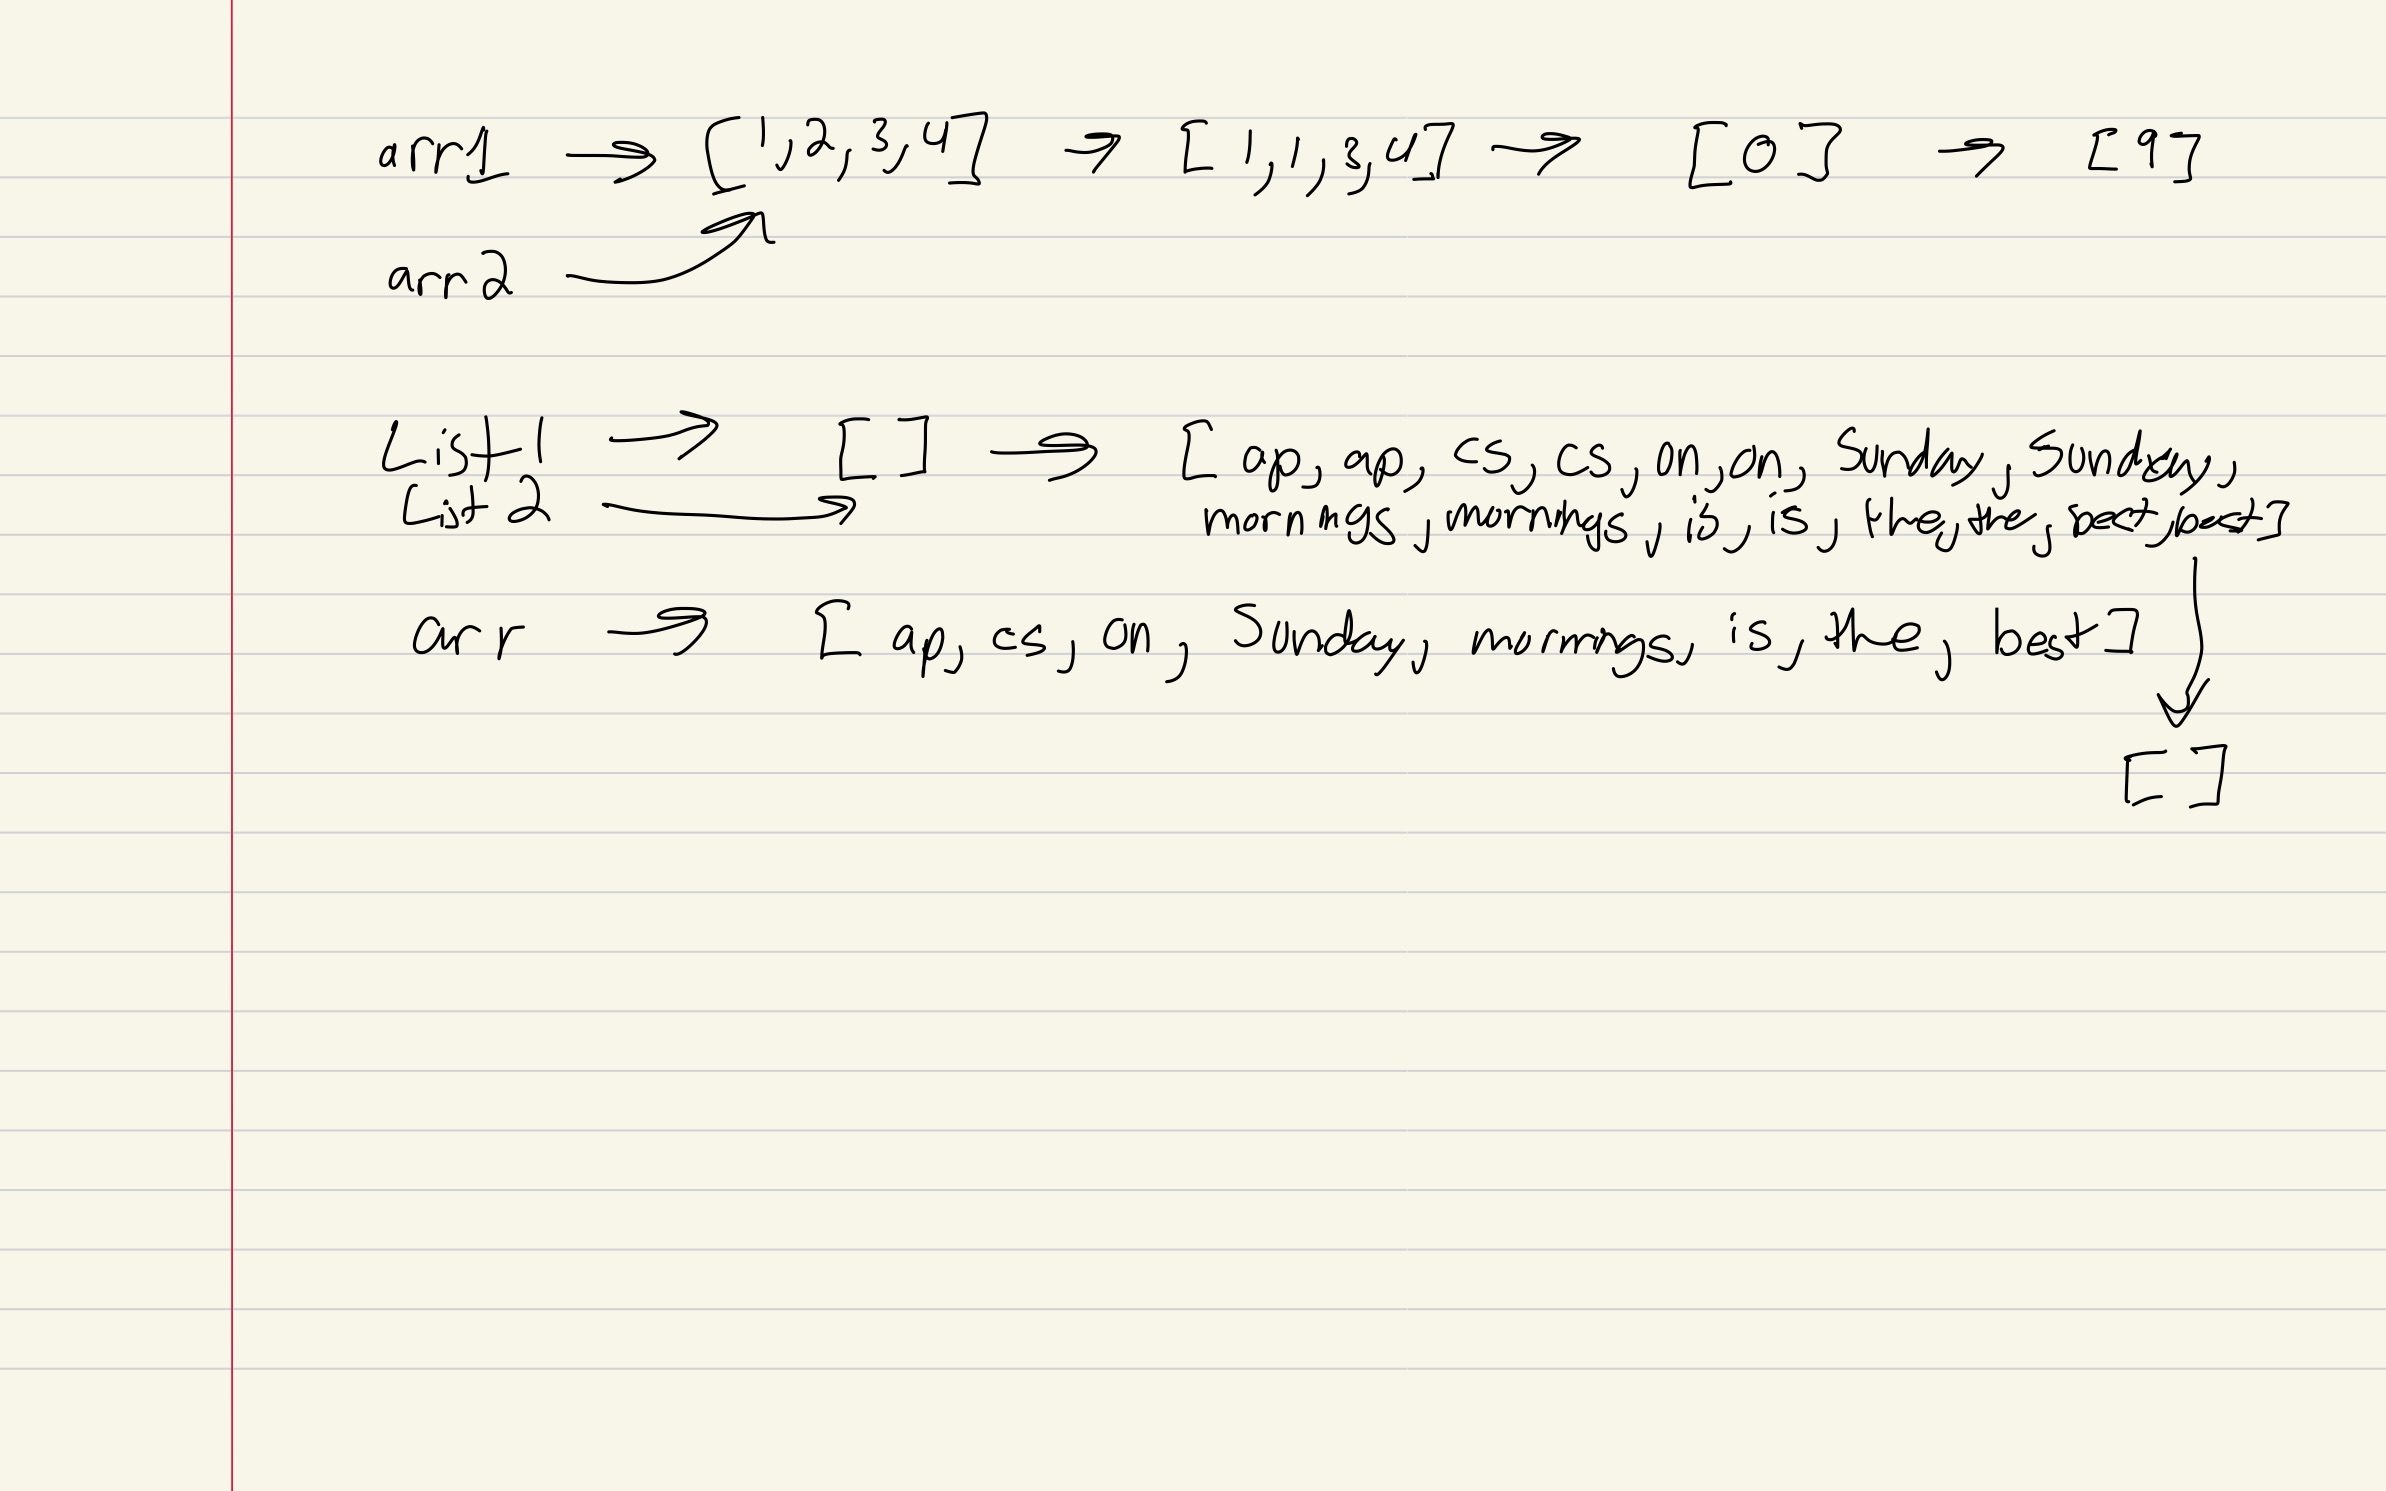 arr1 → [1,2,3,4] → [1,1,3,4] → [0] → [9]
arr2
List1 → [ ] → [ap, ap, cs, cs, on, on, Sunday, Sunday,
List2 → mornings, mornings, is, is, the, the, best, best]
arr → [ap, cs, on, Sunday, mornings, is, the, best]
[ ]